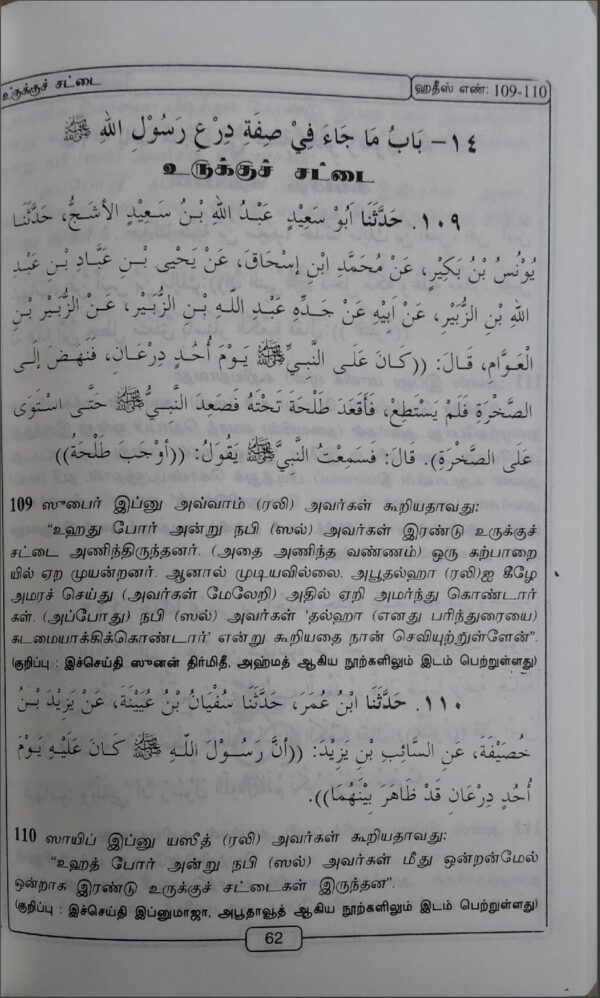 உருக்குச் சட்டை
ஹதீஸ் எண்: 109-110
١٤- بَابُ مَا جَاءَ فِيْ صِفَةِ دِرْعِ رَسُوْلِ اللهِ ﷺ
உருக்குச் சட்டை
١٠٩. حَدَّثَنَا أَبُوْ سَعِيْدٍ عَبْدُ اللهِ بْنُ سَعِيْدٍ الأَشَجُّ، حَدَّثَنَا
يُوْنُسُ بْنُ بَكِيْرٍ، عَنْ مُحَمَّدِ ابْنِ إِسْحَاقَ، عَنْ يَحْيَى بْنِ عَبَّادِ بْنِ عَبْدِ
اللهِ بْنِ الزُّبَيْرِ، عَنْ أَبِيْهِ عَنْ جَدِّهِ عَبْدِ اللَّهِ بْنِ الزُّبَيْرِ، عَنْ الزُّبَيْرِ بْنِ
الْعَوَّامِ، قَالَ: ((كَانَ عَلَى النَّبِيِّ ﷺ يَوْمَ أُحُدٍ دِرْعَانِ، فَنَهَضَ إِلَى
الصَّخْرَةِ فَلَمْ يَسْتَطِعْ، فَأَقْعَدَ طَلْحَةَ تَحْتَهُ فَصَعِدَ النَّبِيُّ ﷺ حَتَّى اسْتَوَى
عَلَى الصَّخْرَةِ). قَالَ: فَسَمِعْتُ النَّبِيَّ ﷺ يَقُوْلُ: ((أَوْجَبَ طَلْحَةُ))
109 ஸுபைர் இப்னு அவ்வாம் (ரலி) அவர்கள் கூறியதாவது:
"உஹது போர் அன்று நபி (ஸல்) அவர்கள் இரண்டு உருக்குச்
சட்டை அணிந்திருந்தனர். (அதை அணிந்த வண்ணம்) ஒரு கற்பாறை
யில் ஏற முயன்றனர். ஆனால் முடியவில்லை. அபூதல்ஹா (ரலி)ஐ கீழே
அமரச் செய்து (அவர்கள் மேலேறி) அதில் ஏறி அமர்ந்து கொண்டார்
கள். (அப்போது) நபி (ஸல்) அவர்கள் 'தல்ஹா (எனது பரிந்துரையை)
கடமையாக்கிக்கொண்டார்' என்று கூறியதை நான் செவியுற்றுள்ளேன்".
(குறிப்பு : இச்செய்தி ஸுனன் திர்மிதீ, அஹ்மத் ஆகிய நூற்களிலும் இடம் பெற்றுள்ளது)
١١٠. حَدَّثَنَا ابْنُ عُمَرَ، حَدَّثَنَا سُفْيَانُ بْنُ عُيَيْنَةَ، عَنْ يَزِيْدَ بْنُ
خُصَيْفَةَ، عَنِ السَّائِبِ بْنِ يَزِيْدَ: ((أَنَّ رَسُوْلَ اللَّهِ ﷺ كَانَ عَلَيْهِ يَوْمَ
أُحُدٍ دِرْعَانِ قَدْ ظَاهَرَ بَيْنَهُمَا)).
110 ஸாயிப் இப்னு யஸீத் (ரலி) அவர்கள் கூறியதாவது:
"உஹத் போர் அன்று நபி (ஸல்) அவர்கள் மீது ஒன்றன்மேல்
ஒன்றாக இரண்டு உருக்குச் சட்டைகள் இருந்தன".
(குறிப்பு : இச்செய்தி இப்னுமாஜா, அபூதாவூத் ஆகிய நூற்களிலும் இடம் பெற்றுள்ளது)
62